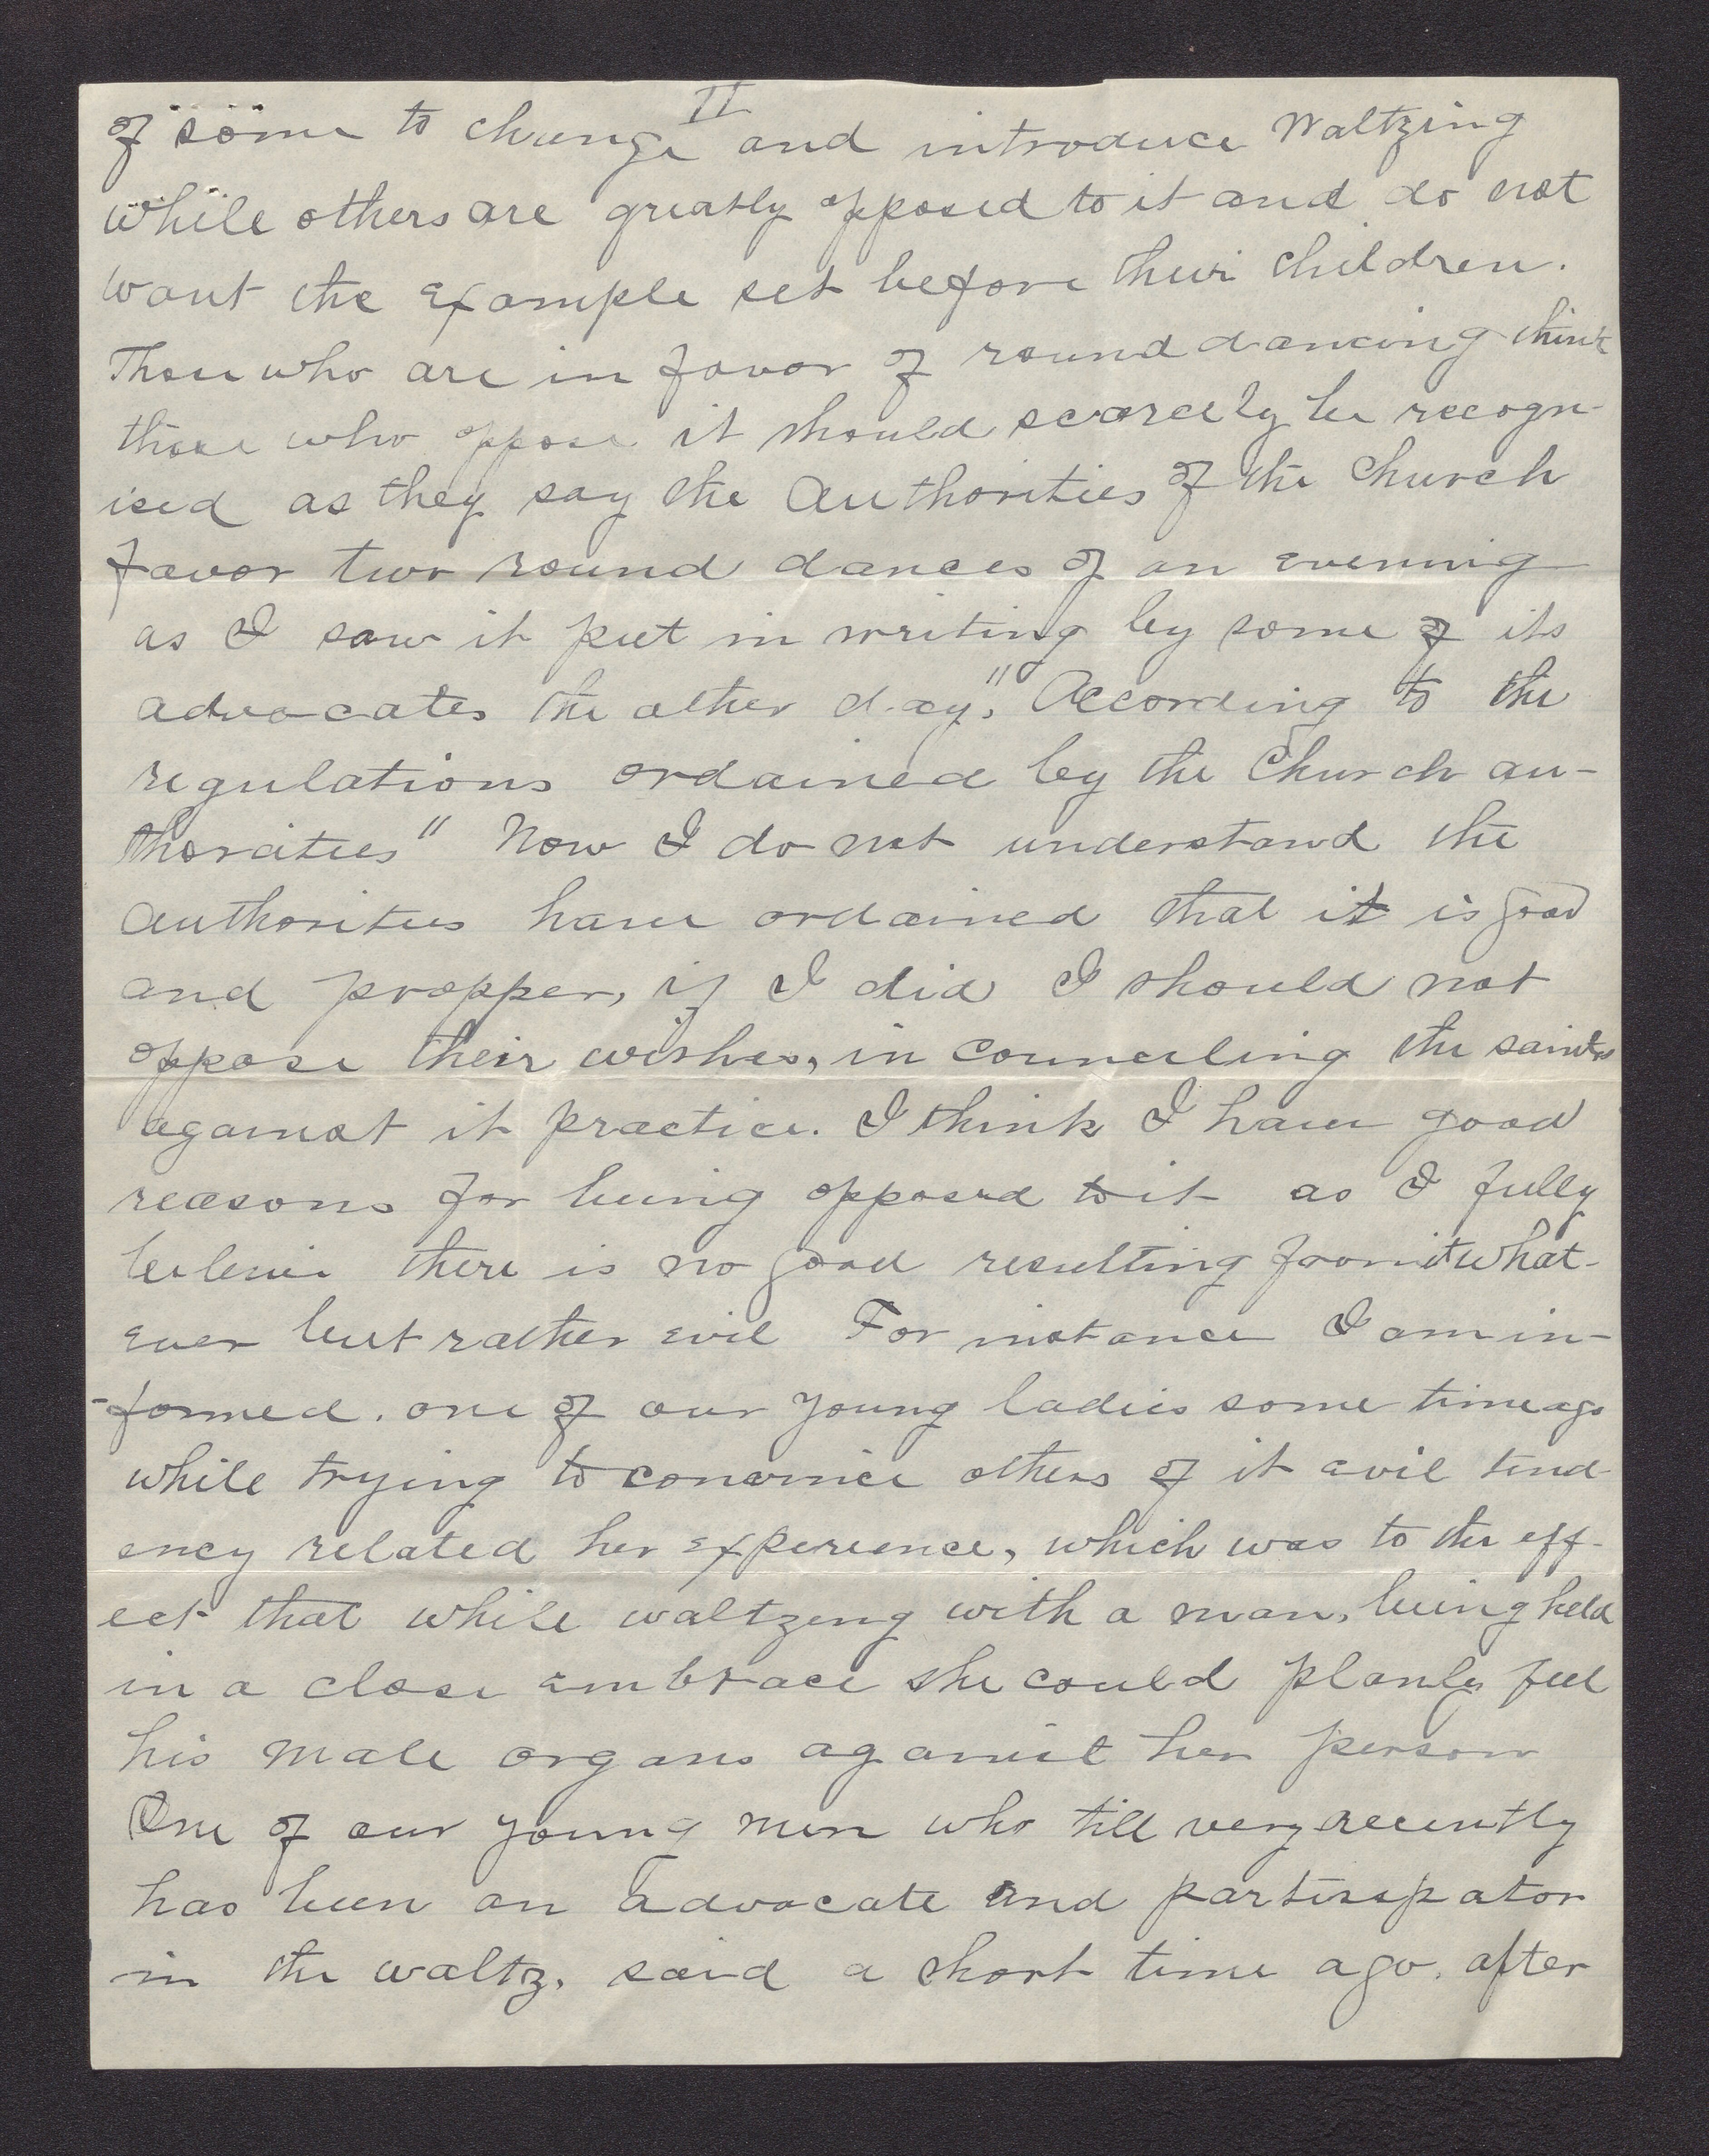 II
of some to change and introduce Waltzing
while others are greatly opposed to it and do not
want the example set before their children.
Those who are in favor of round dancing think
those who oppose it should scarcely be recogn-
ised as they say the Authorities of the Church
favor two round dances of an evening
as I saw it put in writing by some of its
advocates the other day, "According to the
regulations ordained by the Church au-
thorities" Now I do not understand the
authorities have ordained that it is good
and propper, if I did I should not
oppose their wishes, in counceling the saints
against it practice. I think I have good
reasons for being opposed to it as I fully
beleive there is no good resulting from it what-
ever but rather evil For instance I am in-
-formed. one of our young ladies some time ago
while trying to convince others of it evil tend
ency related her experience, which was to the eff-
ect that while waltzing with a man, being held
in a close embrace she could planly feel
his male organs against her person
One of our young men who till very recently
has been an advocate and partisipator
in the waltz, said a short time ago, after